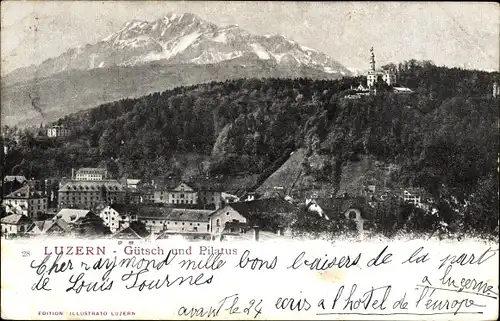 28 LUZERN - Gütsch und Pilatus
Cher Raymond mille bons baisers de la part
de Louis Fournes
avant le 24 écris à l'hotel de l'europe
à Luzerne
EDITION ILLUSTRATO LUZERN